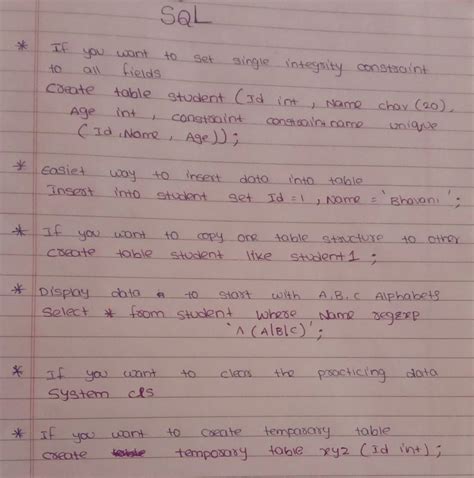 SQL
* If you want to set single integrity constraint
to all fields
Create table student (Id int, Name char (20),
Age int, constraint constraint name unique
(Id, Name, Age));
* Easiet way to insert data into table
Insert into student set Id = 1, Name = 'Bhavani';
* If you want to copy one table structure to other
Create table student like student1;
* Display data to start with A, B, C Alphabets
Select * from student where Name regexp
'^(A|B|C)';
* If you want to clear the practicing data
System cls
* If you want to create temporary table
Create temporary table xyz (Id int);